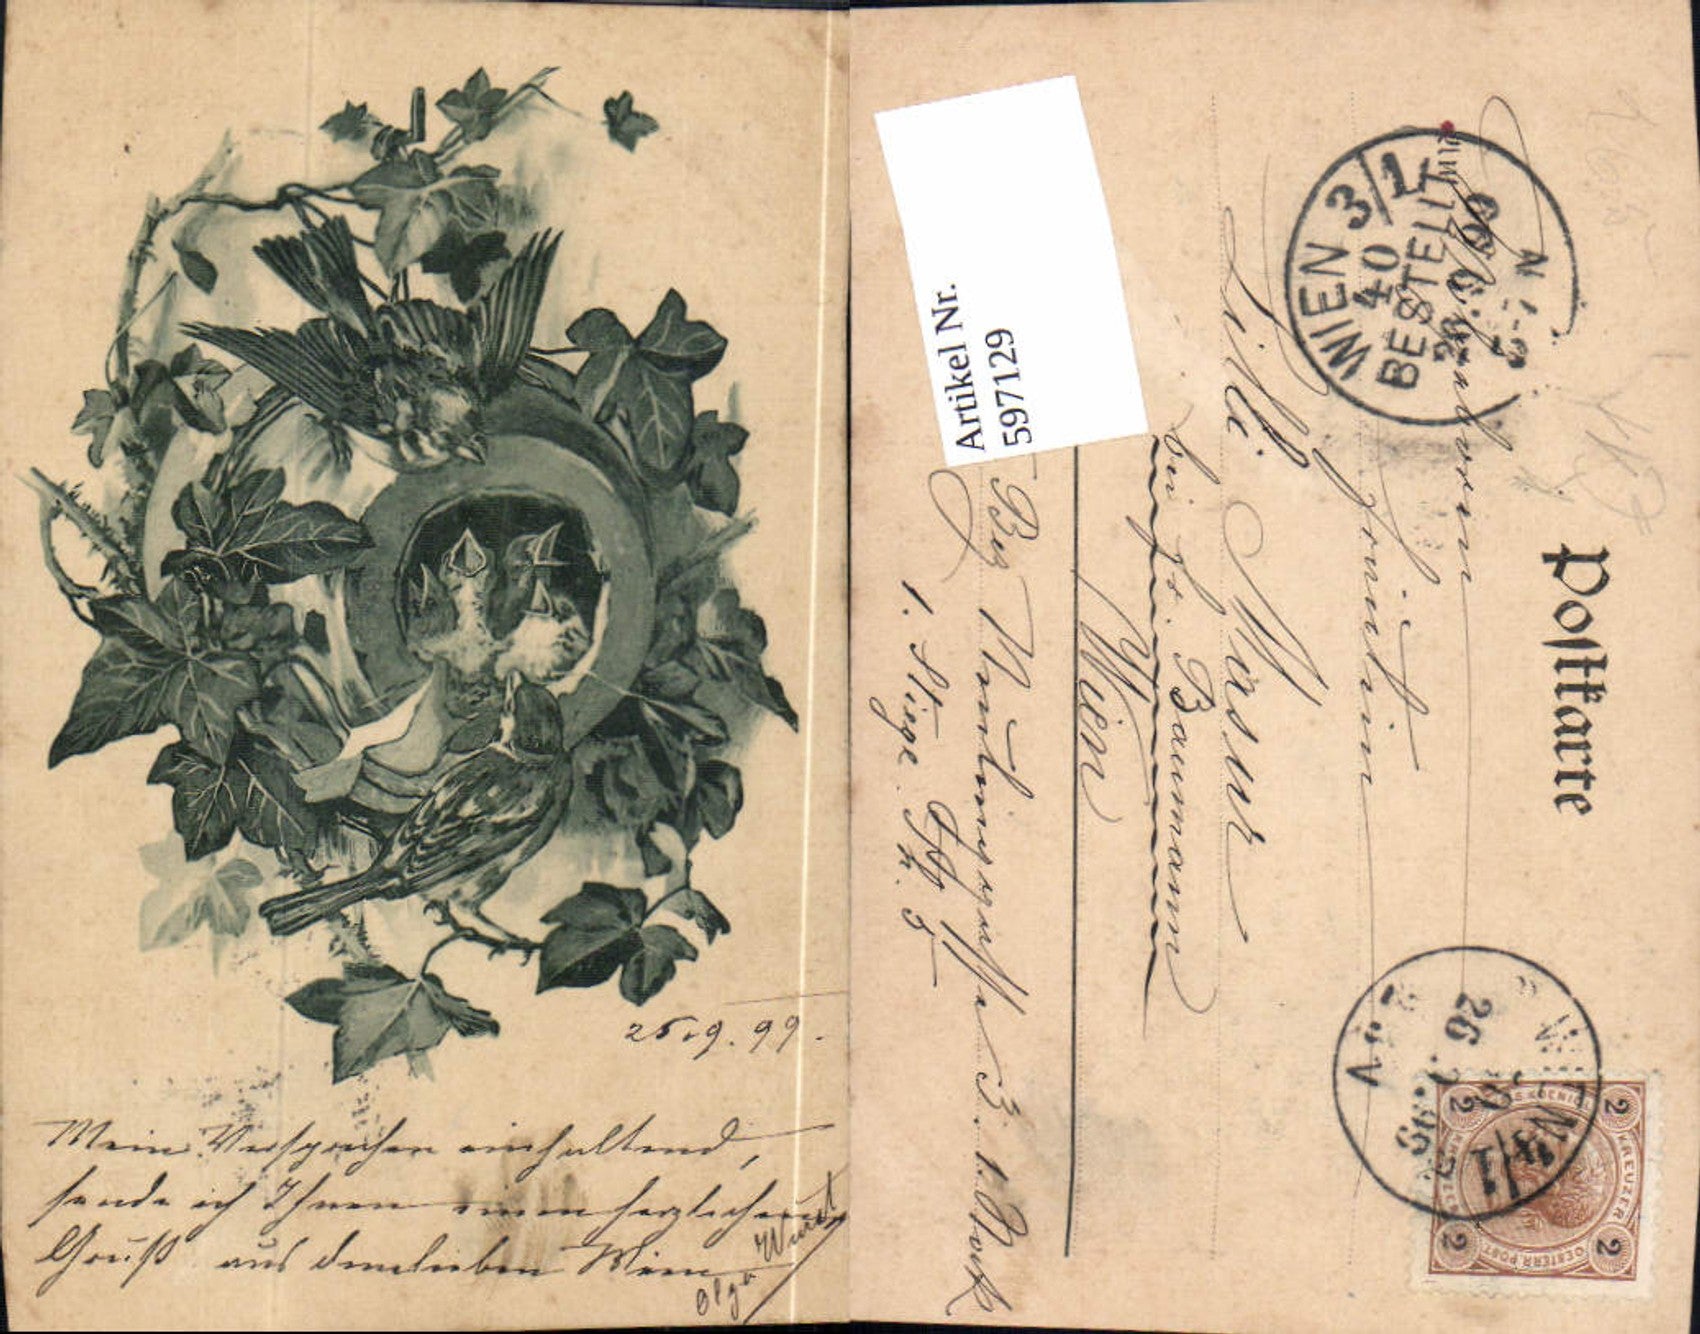 25.9.99.
Mein Versprechen einhaltend,
sende ich Ihnen einen herzlichen
Gruß aus dem lieben Wien
Olga Wurst
Postkarte
Fräulein
Lilli Masur
bei Fr. Baumann
Wien
Bez
3. 1. Stock
1. Stiege
Artikel Nr.
597129
WIEN 3/1
40
BESTELLT
26.9.99
WIEN
26.9.99
2 KREUZER 2
2 2
OESTERR. POST